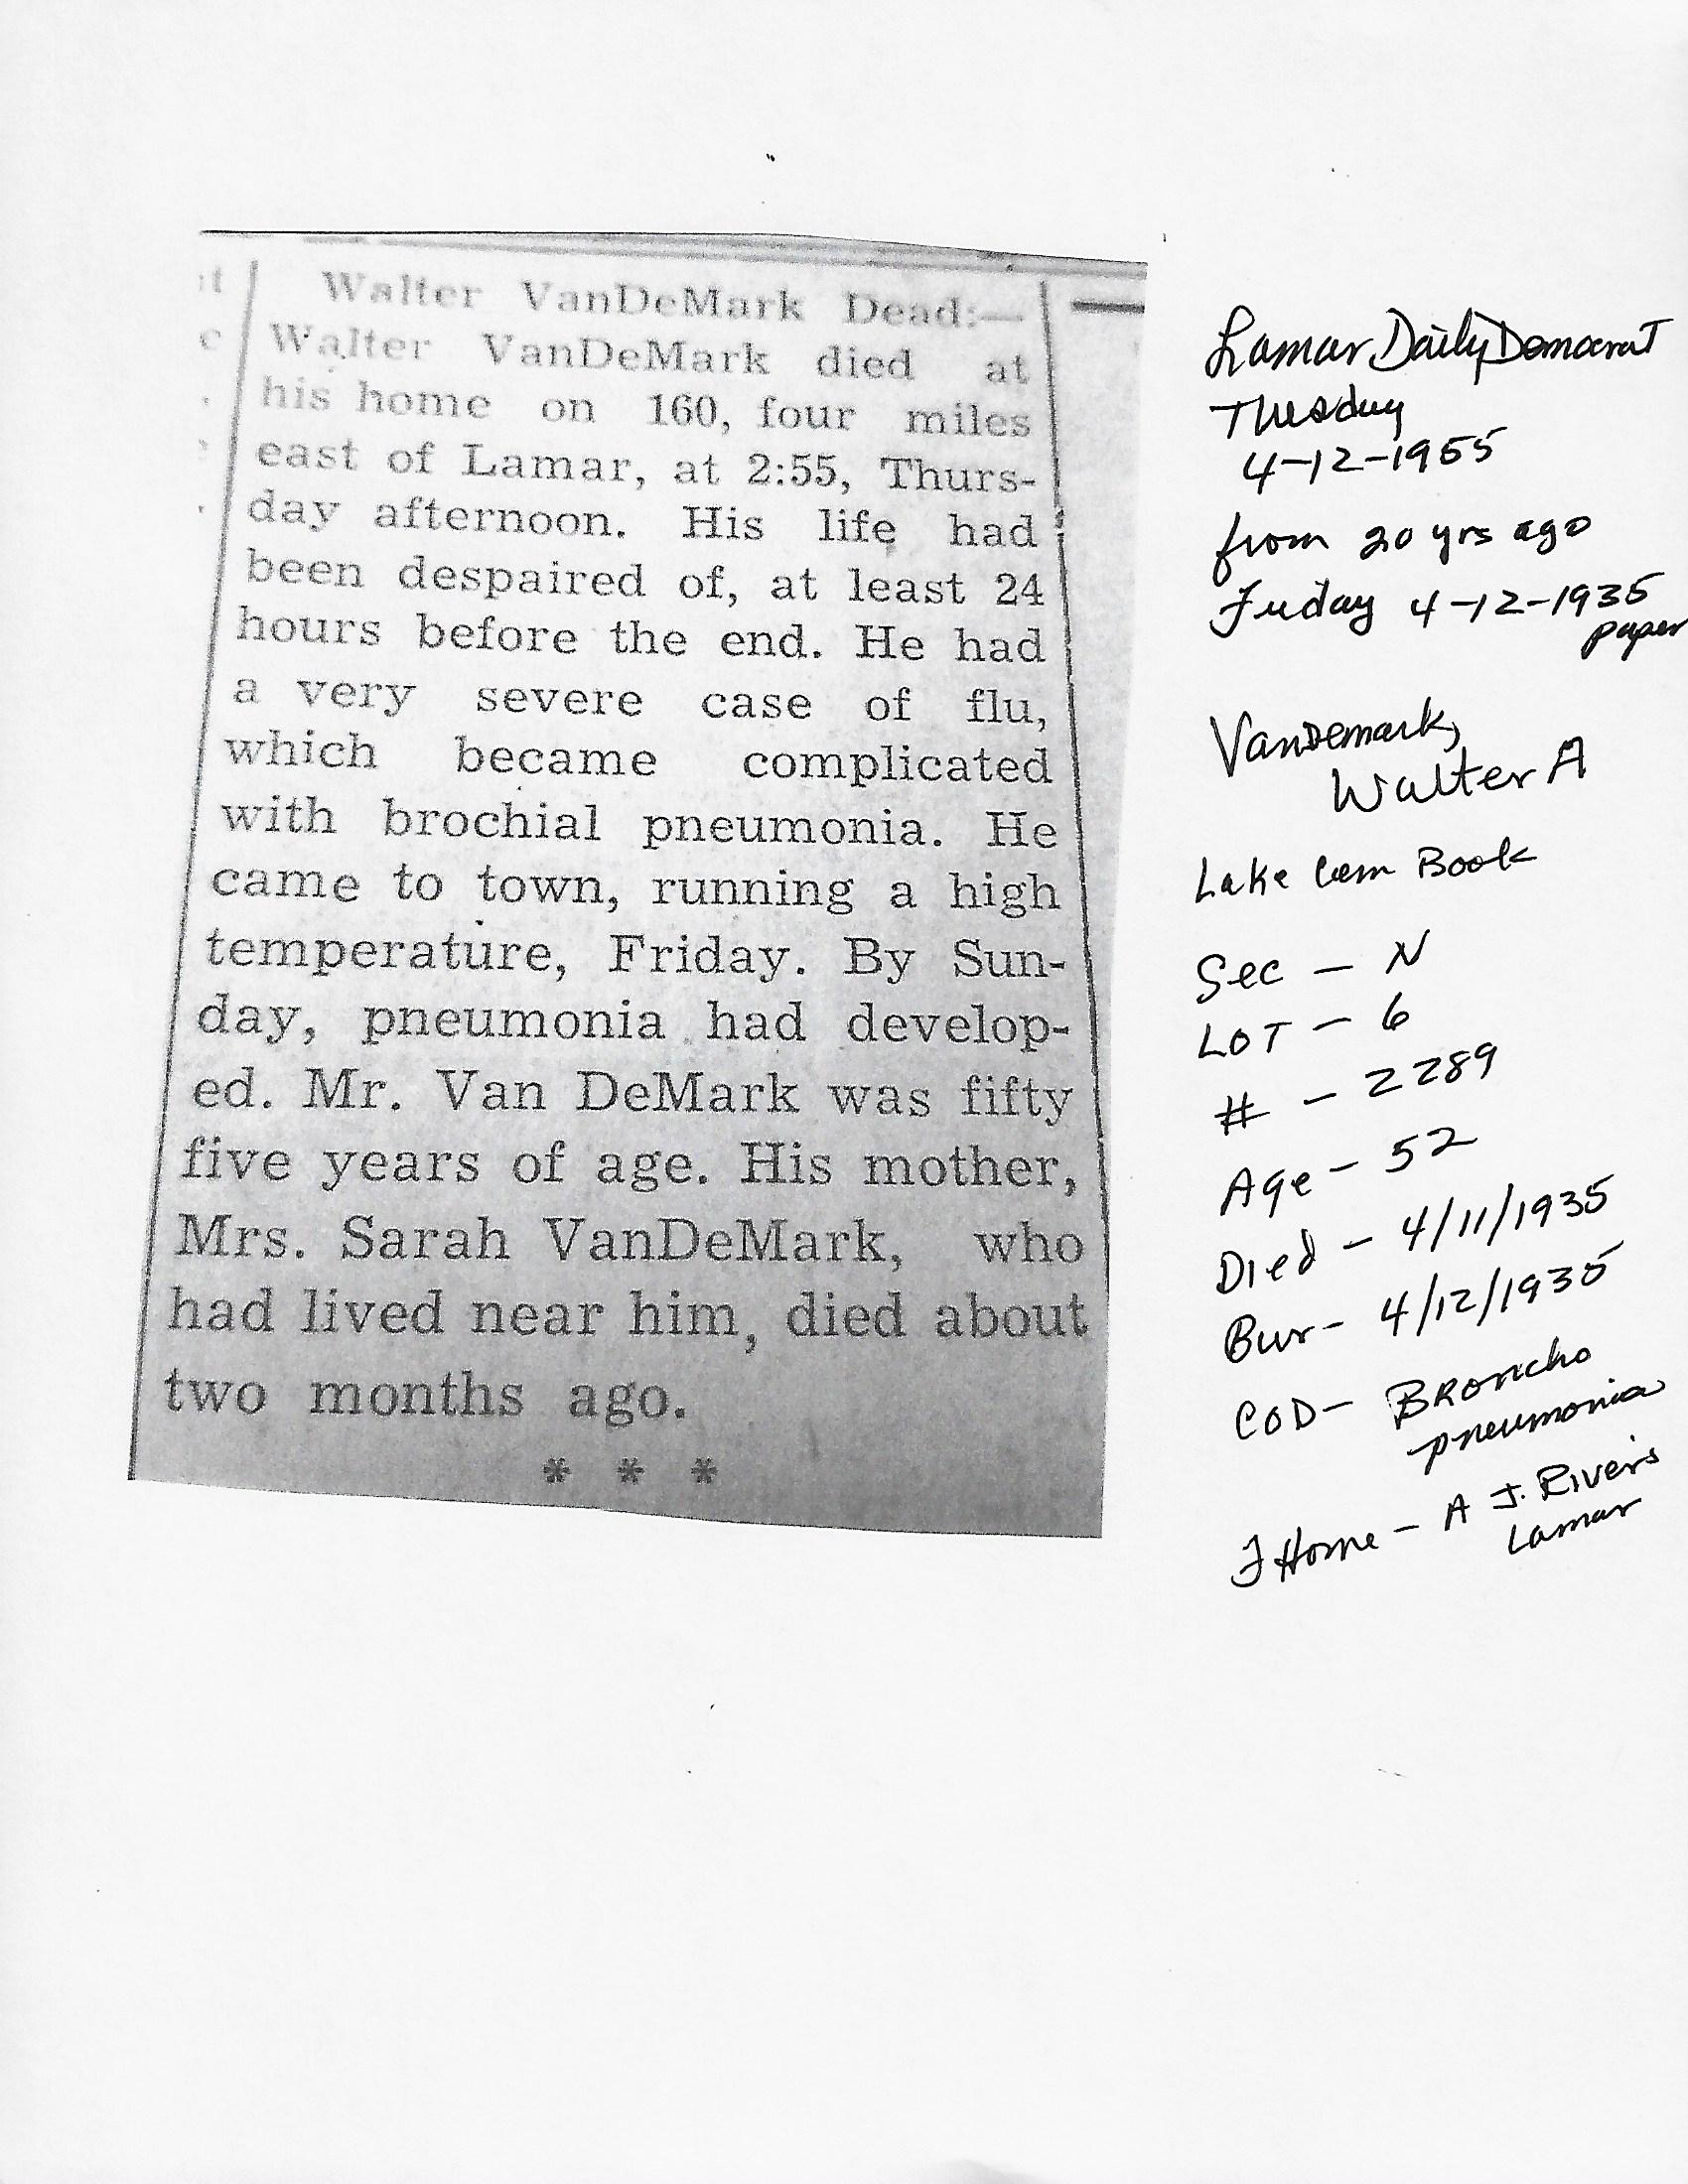 Walter VanDeMark Dead:—
Walter VanDeMark died at
his home on 160, four miles
east of Lamar, at 2:55, Thurs-
day afternoon. His life had
been despaired of, at least 24
hours before the end. He had
a very severe case of flu,
which became complicated
with brochial pneumonia. He
came to town, running a high
temperature, Friday. By Sun-
day, pneumonia had develop-
ed. Mr. Van DeMark was fifty
five years of age. His mother,
Mrs. Sarah VanDeMark, who
had lived near him, died about
two months ago.
* * *
Lamar Daily Democrat
Tuesday
4-12-1955
from 20 yrs ago
Friday 4-12-1935
paper
VanDemark,
Walter A
Lake Cem Book
Sec - N
LOT - 6
# - 2289
Age - 52
Died - 4/11/1935
Bur - 4/12/1935
COD - Broncho
pneumonia
F Home - A J. Rivers
Lamar